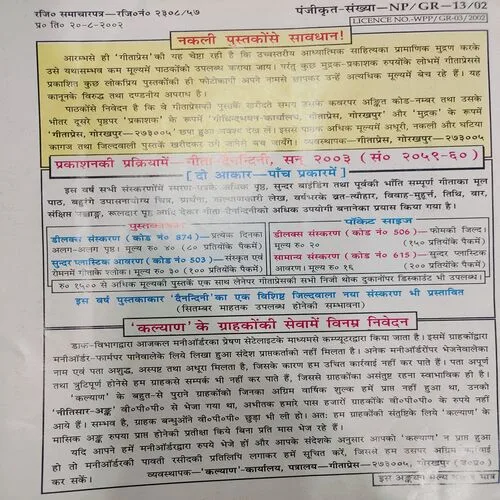 रजि० समाचारपत्र—रजि०नं० २३०८/५७
पंजीकृत-संख्या—NP/GR-13/02
प्र० ति० २०-८-२००२
LICENCE NO.-WPP/GR-03/2002
नकली पुस्तकोंसे सावधान!
आरम्भसे ही 'गीताप्रेस'की यह चेष्टा रही है कि उच्चस्तरीय आध्यात्मिक साहित्यका प्रामाणिक मुद्रण करके
उसे यथासम्भव कम मूल्यमें पाठकोंको उपलब्ध कराया जाय। परंतु कुछ मुद्रक-प्रकाशक रुपयोंके लोभमें गीताप्रेससे
प्रकाशित कुछ लोकप्रिय पुस्तकोंकी ही फोटोकापी अपने नामसे छापकर उन्हें अत्यधिक मूल्यमें बेच रहे हैं। यह
कानूनके विरुद्ध तथा दण्डनीय अपराध है।
पाठकोंसे निवेदन है कि वे गीताप्रेसकी पुस्तकें खरीदते समय इसके कवरपर अङ्कित कोड-नम्बर तथा उसके
भीतर दूसरे पृष्ठपर 'प्रकाशक' के रूपमें 'गोविन्दभवन-कार्यालय, गीताप्रेस, गोरखपुर' और 'मुद्रक' के रूपमें
'गीताप्रेस, गोरखपुर—२७३००५' छपा हुआ अवश्य देख लें। इससे पाठक अधिक मूल्यमें अधूरी, नकली और घटिया
कागज तथा जिल्दवाली पुस्तकें खरीदकर ठगे जानेसे बच जायेंगे। व्यवस्थापक—गीताप्रेस, गोरखपुर—२७३००५
प्रकाशनकी प्रक्रियामें—गीता-दैनन्दिनी, सन् २००३ (सं० २०५९-६०)
[ दो आकार—पाँच प्रकारमें ]
इस वर्ष सभी संस्करणोंमें स्मरण-पत्रके अधिक पृष्ठ, सुन्दर बाइंडिंग तथा पूर्वकी भाँति सम्पूर्ण गीताका मूल
पाठ, बहुरंगे उपासनायोग्य चित्र, प्रार्थना, कल्याणकारी लेख, वर्षभरके व्रत-त्यौहार, विवाह-मुहूर्त्त, तिथि, वार,
संक्षिप्त पञ्चाङ्ग, रूलदार पृष्ठ आदि देकर गीता-दैनन्दिनीको अधिक उपयोगी बनानेका प्रयास किया गया है।
पुस्तकाकार
पॉकेट साइज
डीलक्स संस्करण (कोड नं० 874)—प्रत्येक दिनका
डीलक्स संस्करण (कोड नं० 506)—फोमकी जिल्द।
अलग-अलग पृष्ठ। मूल्य रु० ४० (८० प्रतियोंके पैकमें)
मूल्य रु० २० (१५० प्रतियोंके पैकमें)
सुन्दर प्लास्टिक आवरण (कोड नं० 503)—संस्कृत एवं
सामान्य संस्करण (कोड नं० 615)—सुन्दर प्लास्टिक
रोमनमें गीताके श्लोक। मूल्य रु० ३० (१०० प्रतियोंके पैकमें)
आवरण। मूल्य रु० १६ (२०० प्रतियोंके पैकमें)
रु० १५०० से अधिक मूल्यकी पुस्तकें एक साथ लेनेपर गीताप्रेसकी सभी निजी थोक दुकानोंपर डिस्काउंट भी उपलब्ध।
इस वर्ष पुस्तकाकार 'दैनन्दिनी'का एक विशिष्ट जिल्दवाला नया संस्करण भी प्रस्तावित
(सितम्बर माहतक उपलब्ध होनेकी सम्भावना)
'कल्याण' के ग्राहकोंकी सेवामें विनम्र निवेदन
डाक-विभागद्वारा आजकल मनीऑर्डरका प्रेषण सेटेलाइटके माध्यमसे कम्प्यूटरद्वारा किया जाता है। इसमें ग्राहकोंद्वारा
मनीऑर्डर-फार्मपर पानेवालेके लिये लिखा हुआ संदेश प्राप्तकर्ताको नहीं मिलता है। अनेक मनीऑर्डरोंपर भेजनेवालेका
नाम एवं पता अशुद्ध, अस्पष्ट तथा अधूरा मिलता है, जिसके कारण हम उचित कार्रवाई नहीं कर पाते हैं। पता अपूर्ण
तथा त्रुटिपूर्ण होनेसे हम ग्राहकसे सम्पर्क भी नहीं कर पाते हैं, जिससे ग्राहकोंका असंतुष्ट रहना स्वाभाविक ही है।
'कल्याण' के बहुत-से पुराने ग्राहकोंको जिनका अग्रिम वार्षिक शुल्क हमें प्राप्त नहीं हुआ था, उनको
'नीतिसार-अङ्क' वी०पी०पी० से भेजा गया था, अभीतक हमारे पास हजारों ग्राहकोंके वी०पी०पी० के रुपये नहीं
आये हैं। सम्भव है, ग्राहक बन्धुओंने वी०पी०पी० छुड़ा भी ली हो। अतः हम ग्राहकोंकी संतुष्टिके लिये 'कल्याण' के
मासिक अङ्क रुपया प्राप्त होनेकी प्रतीक्षा किये बिना प्रति मास भेज रहे हैं।
यदि आपने हमें मनीऑर्डरद्वारा रुपये भेजे हों और आपके संदेशके अनुसार आपको 'कल्याण' न प्राप्त हुआ
हो तो मनीऑर्डरकी पावती रसीदकी प्रतिलिपि लगाकर हमें सूचित करें, जिससे हम उसपर अग्रिम कार्रवाई
कर सकें। व्यवस्थापक—'कल्याण'-कार्यालय, पत्रालय—गीताप्रेस—२७३००५, गोरखपुर (उ०प्र०)